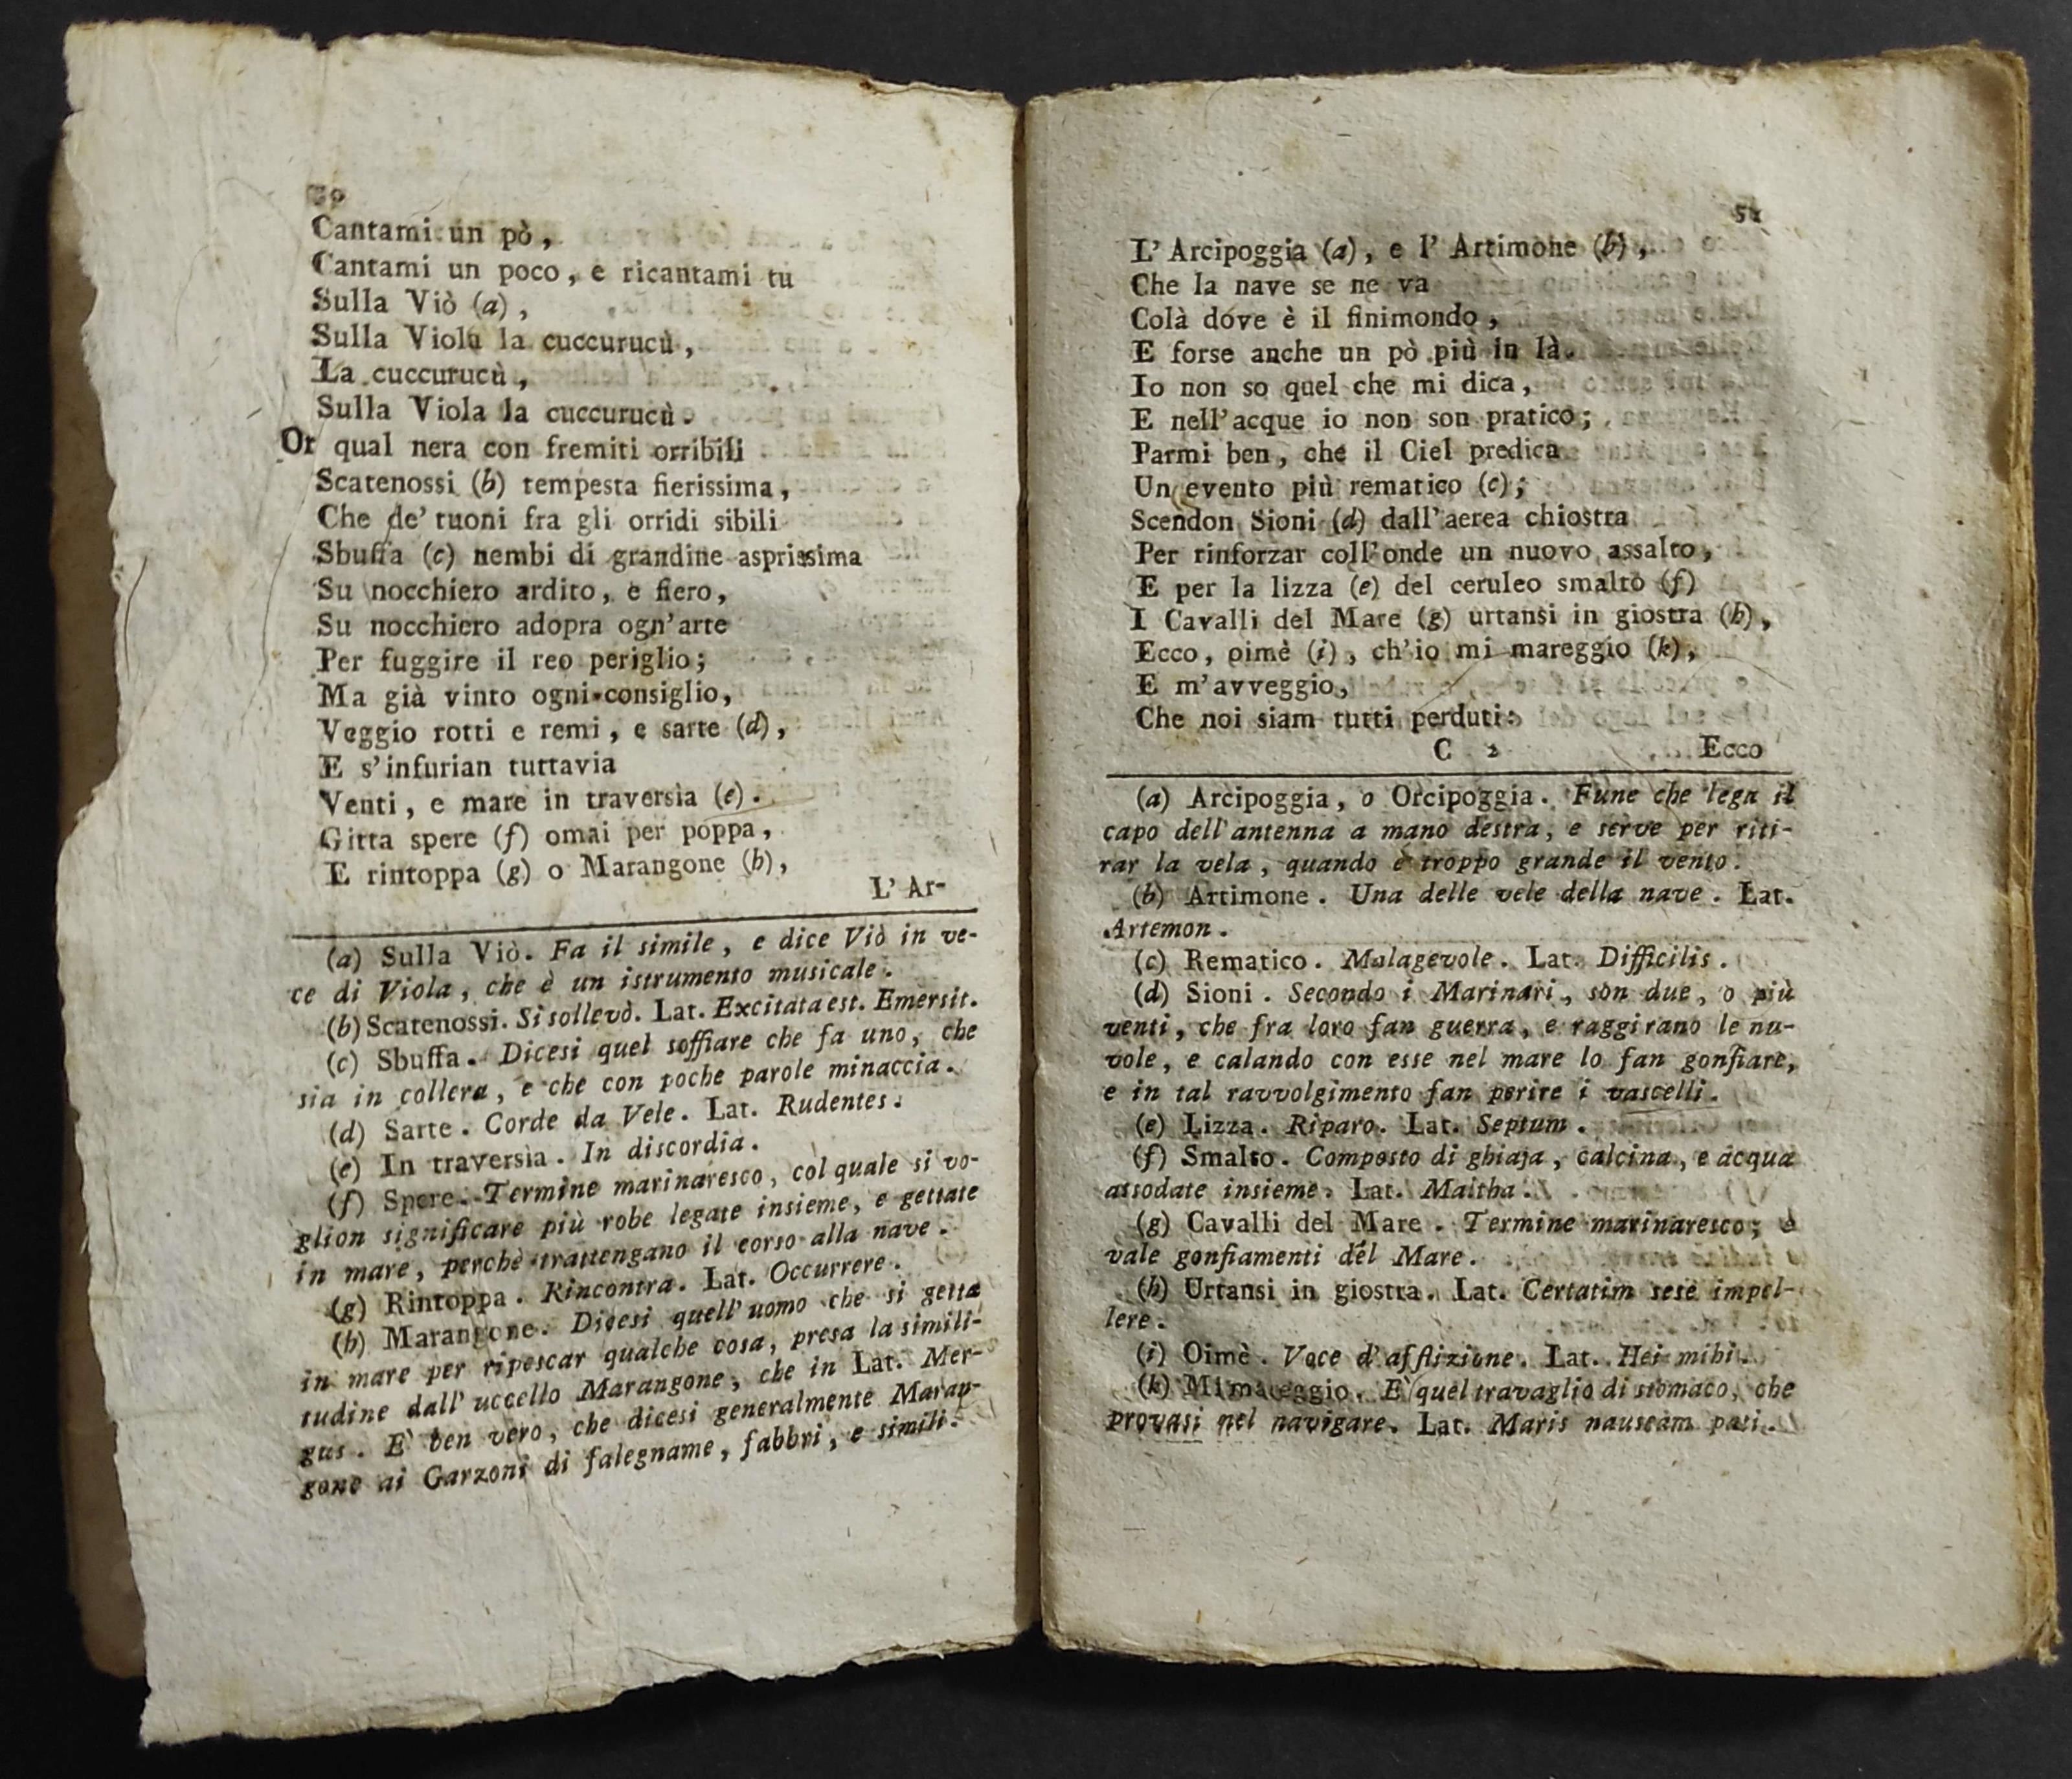 Cantami un pò,
Cantami un poco, e ricantami tu
Sulla Viò (a),
Sulla Viola la cuccurucù,
La cuccurucù,
Sulla Viola la cuccurucù.
Or qual nera con fremiti orribili
Scatenossi (b) tempesta fierissima,
Che de' tuoni fra gli orridi sibili
Sbuffa (c) nembi di grandine asprissima
Su nocchiero ardito, e fiero,
Su nocchiero adopra ogn'arte
Per fuggire il reo periglio;
Ma già vinto ogni consiglio,
Veggio rotti e remi, e sarte (d),
E s'infurian tuttavia
Venti, e mare in traversìa (e).
Gitta spere (f) omai per poppa,
E rintoppa (g) o Marangone (h),
L' Ar-
(a) Sulla Viò. Fa il simile, e dice Viò in ve-
ce di Viola, che è un istrumento musicale.
(b) Scatenossi. Si sollevò. Lat. Excitata est. Emersit.
(c) Sbuffa. Dicesi quel soffiare che fa uno, che
sia in collera, e che con poche parole minaccia.
(d) Sarte. Corde da Vele. Lat. Rudentes.
(e) In traversìa. In discordia.
(f) Spere. Termine marinaresco, col quale si vo-
glion significare più robe legate insieme, e gettate
in mare, perchè trattengano il corso alla nave.
(g) Rintoppa. Rincontra. Lat. Occurrere.
(h) Marangone. Dicesi quell' uomo che si getta
in mare per ripescar qualche cosa, presa la simili-
tudine dall' uccello Marangone, che in Lat. Mer-
gus. E' ben vero, che dicesi generalmente Maran-
gone ai Garzoni di falegname, fabbri, e simili.
51
L' Arcipoggia (a), e l' Artimone (b),
Che la nave se ne va
Colà dove è il finimondo,
E forse anche un pò più in là.
Io non so quel che mi dica,
E nell'acque io non son pratico;
Parmi ben, che il Ciel predica
Un evento più rematico (c);
Scendon Sioni (d) dall'aerea chiostra
Per rinforzar coll'onde un nuovo assalto,
E per la lizza (e) del ceruleo smalto (f)
I Cavalli del Mare (g) urtansi in giostra (h),
Ecco, oimè (i), ch'io mi mareggio (k),
E m'avveggio,
Che noi siam tutti perduti:
C 2 Ecco
(a) Arcipoggia, o Orcipoggia. Fune che lega il
capo dell'antenna a mano destra, e serve per riti-
rar la vela, quando è troppo grande il vento.
(b) Artimone. Una delle vele della nave. Lat.
Artemon.
(c) Rematico. Malagevole. Lat. Difficilis.
(d) Sioni. Secondo i Marinari, son due, o più
venti, che fra loro fan guerra, e raggirano le nu-
vole, e calando con esse nel mare lo fan gonfiare,
e in tal ravvolgimento fan perire i vascelli.
(e) Lizza. Riparo. Lat. Septum.
(f) Smalto. Composto di ghiaja, calcina, e acqua
assodate insieme. Lat. Maltha.
(g) Cavalli del Mare. Termine marinaresco; e
vale gonfiamenti del Mare.
(h) Urtansi in giostra. Lat. Certatim sese impel-
lere.
(i) Oimè. Voce d'afflizione. Lat. Hei mihi.
(k) Mi mareggio. E' quel travaglio di stomaco, che
provasi nel navigare. Lat. Maris nauseam pati.